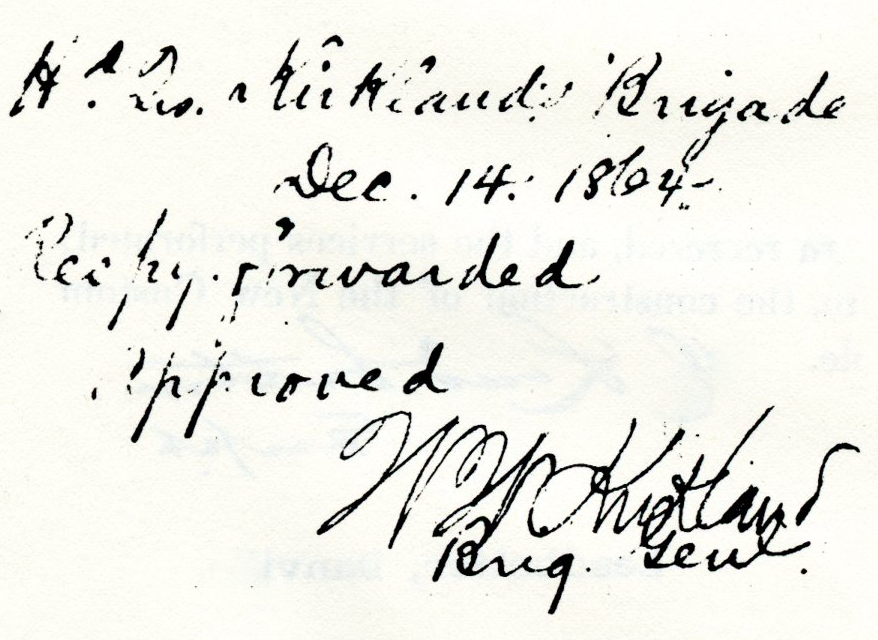 Hd. Qrs. Kirkland's Brigade
Dec. 14. 1864
Resply. forwarded
Approved
W W Kirkland
Brig. Genl.